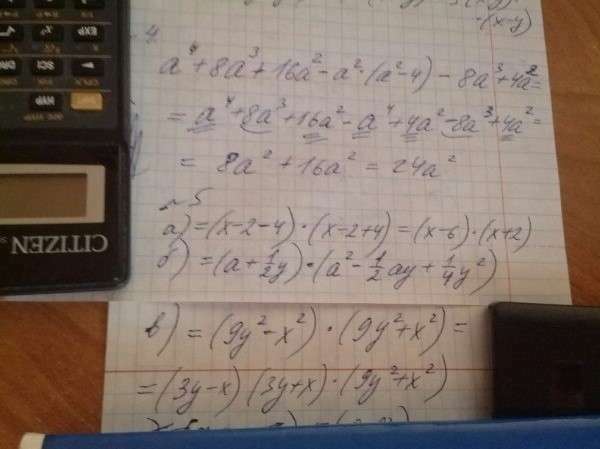 -(x-y)
4
a⁴+8a³+16a²-a²·(a²-4)-8a³+4a²=
=a⁴+8a³+16a²-a⁴+4a²-8a³+4a²=
=8a²+16a²=24a²
~5
а)=(x-2-4)·(x-2+4)=(x-6)·(x+2)
б)=(a+1/2y)·(a²-1/2ay+1/4y²)
в)=(9y²-x²)·(9y²+x²)=
=(3y-x)(3y+x)·(9y²+x²)
EXP
SCI
HYP
CITIZEN